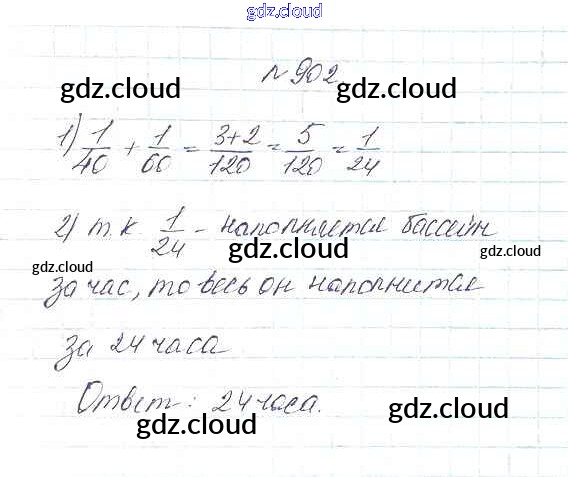 gdz.cloud
gdz.cloud
№ 902
gdz.cloud gdz.cloud
1) 1/40 + 1/60 = 3+2/120 = 5/120 = 1/24
2) т.к. 1/24 - наполняется бассейн
gdz.cloud gdz.cloud gdz.cloud
за час, то весь он наполнится
за 24 часа
Ответ: 24 часа.
gdz.cloud gdz.cloud